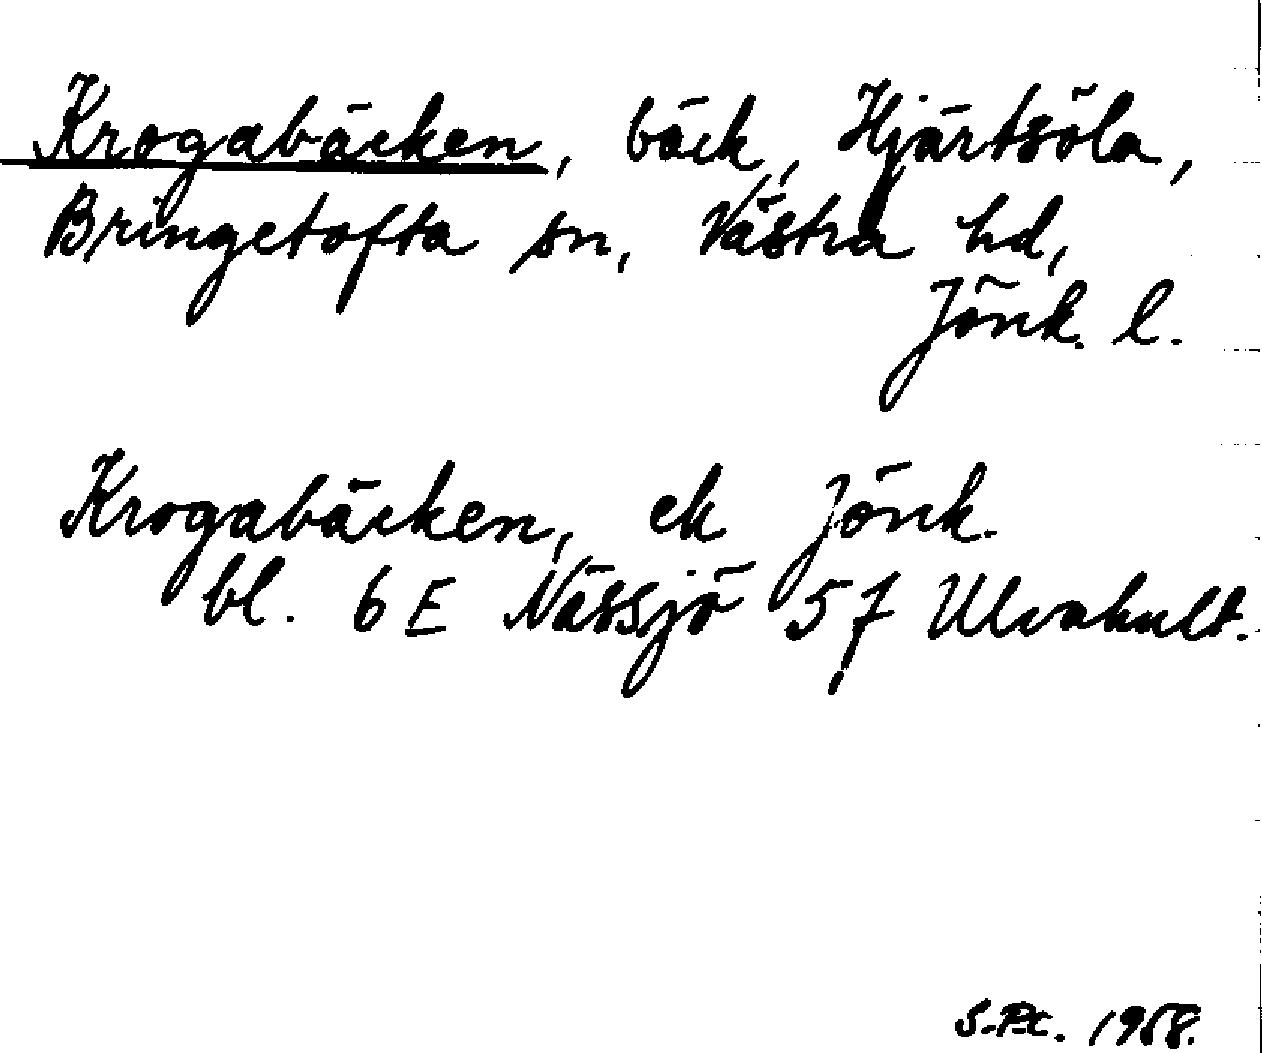 Krogabäcken, bäck, Hjärtsöla,
Bringetofta sn, Västra hd,
Jönk. l.
Krogabäcken, ek Jönk.
bl. 6 E Nässjö 5f Ulvakult.
1958.